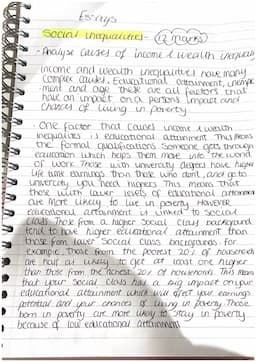 Essays
Social inequalities - (12 marks)
- Analyse causes of income & wealth inequality
Income and wealth inequalities have many
complex causes. Educational attainment, unemploy
-ment and age these are all factors that
have an impact on a persons impact and
chances of living in poverty.
One factor that causes income & wealth
inequalities is educational attainment. This means
the formal qualifications someone gets through
education which helps them move into the world
of work. Those with university degrees have higher
life time earnings than those who dont, and go to
university you need highers. This means that
those with lower levels of educational attainment
are more likely to live in poverty. However
educational attainment is linked to social
class. Those from a higher social class background
tend to have higher educational attainment than
those from lower social class backgrounds. For
example, those from the poorest 20% of households
are half as likely to get at least one higher
than those from the richest 20% of households. This means
that your social class has a big impact on your
educational attainment which will effect your earnings
potential and your chances of living in poverty. Those
born in poverty are more likely to stay in poverty
because of low educational attainment